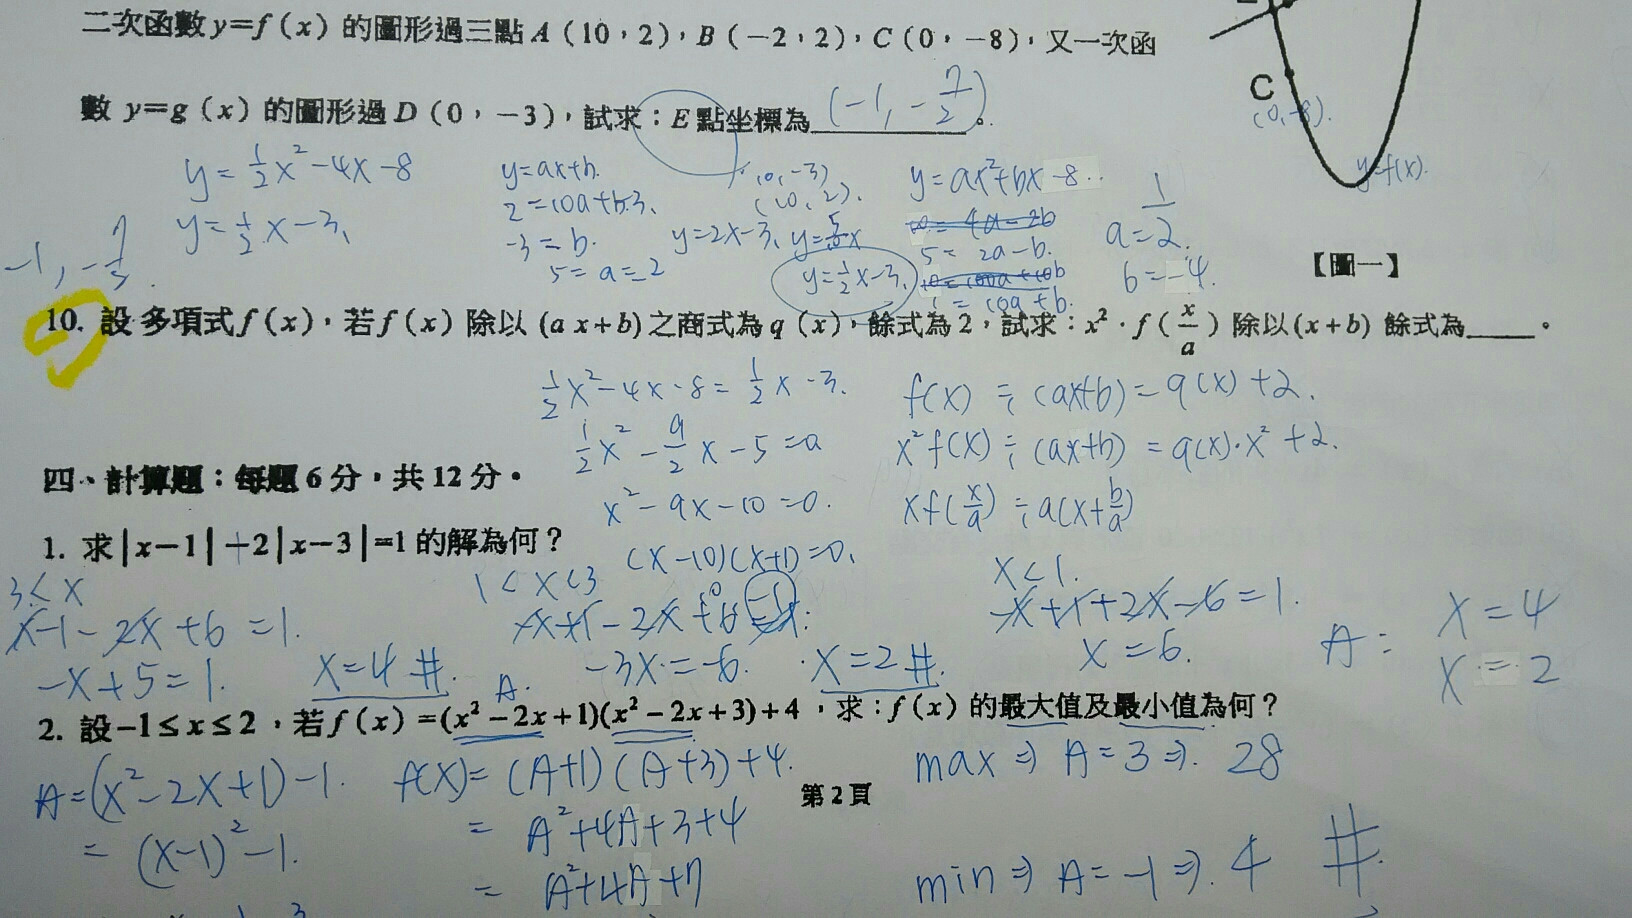 二次函數 y=f(x) 的圖形過三點 A(10,2),B(-2,2),C(0,-8),又一次函
數 y=g(x) 的圖形過 D(0,-3),試求:E 點坐標為 (-1, -7/2)。
C
(0,-8).
y=f(x).
【圖一】
y = 1/2 x² - 4x - 8
y = 1/2 x - 3
-1, -7/2.
y = ax+b.
2 = 10a+b
-3 = b.
5 = a = 2
(0, -3)
(10, 2).
y=2x-3
y=1/2 x-3
y = ax²+bx-8
5 = 2a-b.
1 = 10a+b.
a = 1/2.
b = -4.
10. 設多項式 f(x),若 f(x) 除以 (ax+b) 之商式為 q(x),餘式為 2,試求:x²·f(x/a) 除以 (x+b) 餘式為_____。
1/2 x² - 4x - 8 = 1/2 x - 3.
1/2 x² - 9/2 x - 5 = 0
x² - 9x - 10 = 0.
(x-10)(x+1) = 0.
f(x) ÷ (ax+b) = q(x) + 2.
x² f(x) ÷ (ax+b) = q(x)·x² + 2.
x f(x/a) ÷ a(x + b/a)
四、計算題:每題 6 分,共 12 分。
1. 求 |x-1|+2|x-3|=1 的解為何?
3 < x
x-1-2x+6 = 1.
-x+5 = 1.
x=4 #.
1 < x < 3
-3x = -6.
x=2 #.
x < 1.
-x+1+2x-6 = 1.
x = 6.
A:
x = 4
x = 2
2. 設 -1≤x≤2,若 f(x)=(x²-2x+1)(x²-2x+3)+4,求:f(x) 的最大值及最小值為何?
A.
A = (x²-2x+1)-1.
= (x-1)²-1.
f(x) = (A+1)(A+3)+4.
= A²+4A+3+4
= A²+4A+7
max ⇒ A = 3 ⇒. 28
min ⇒ A = -1 ⇒. 4 #.
第 2 頁